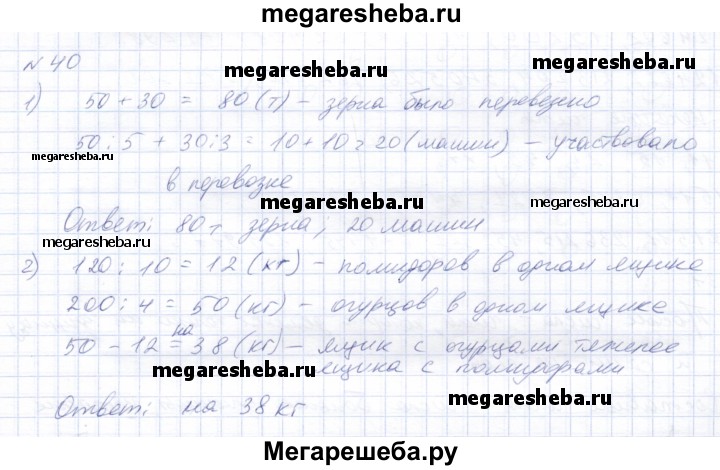 megaresheba.ru
№ 40
megaresheba.ru
megaresheba.ru
1) 50 + 30 = 80 (т) - зерна было перевезено
50 : 5 + 30 : 3 = 10 + 10 = 20 (машин) - участвовало
megaresheba.ru
в перевозке
megaresheba.ru
megaresheba.ru
Ответ: 80 т зерна; 20 машин
megaresheba.ru
megaresheba.ru
2) 120 : 10 = 12 (кг) - помидоров в одном ящике
200 : 4 = 50 (кг) - огурцов в одном ящике
50 - 12 = на 38 (кг) - ящик с огурцами тяжелее
ящика с помидорами
megaresheba.ru
megaresheba.ru
Ответ: на 38 кг
Мегарешеба.ру